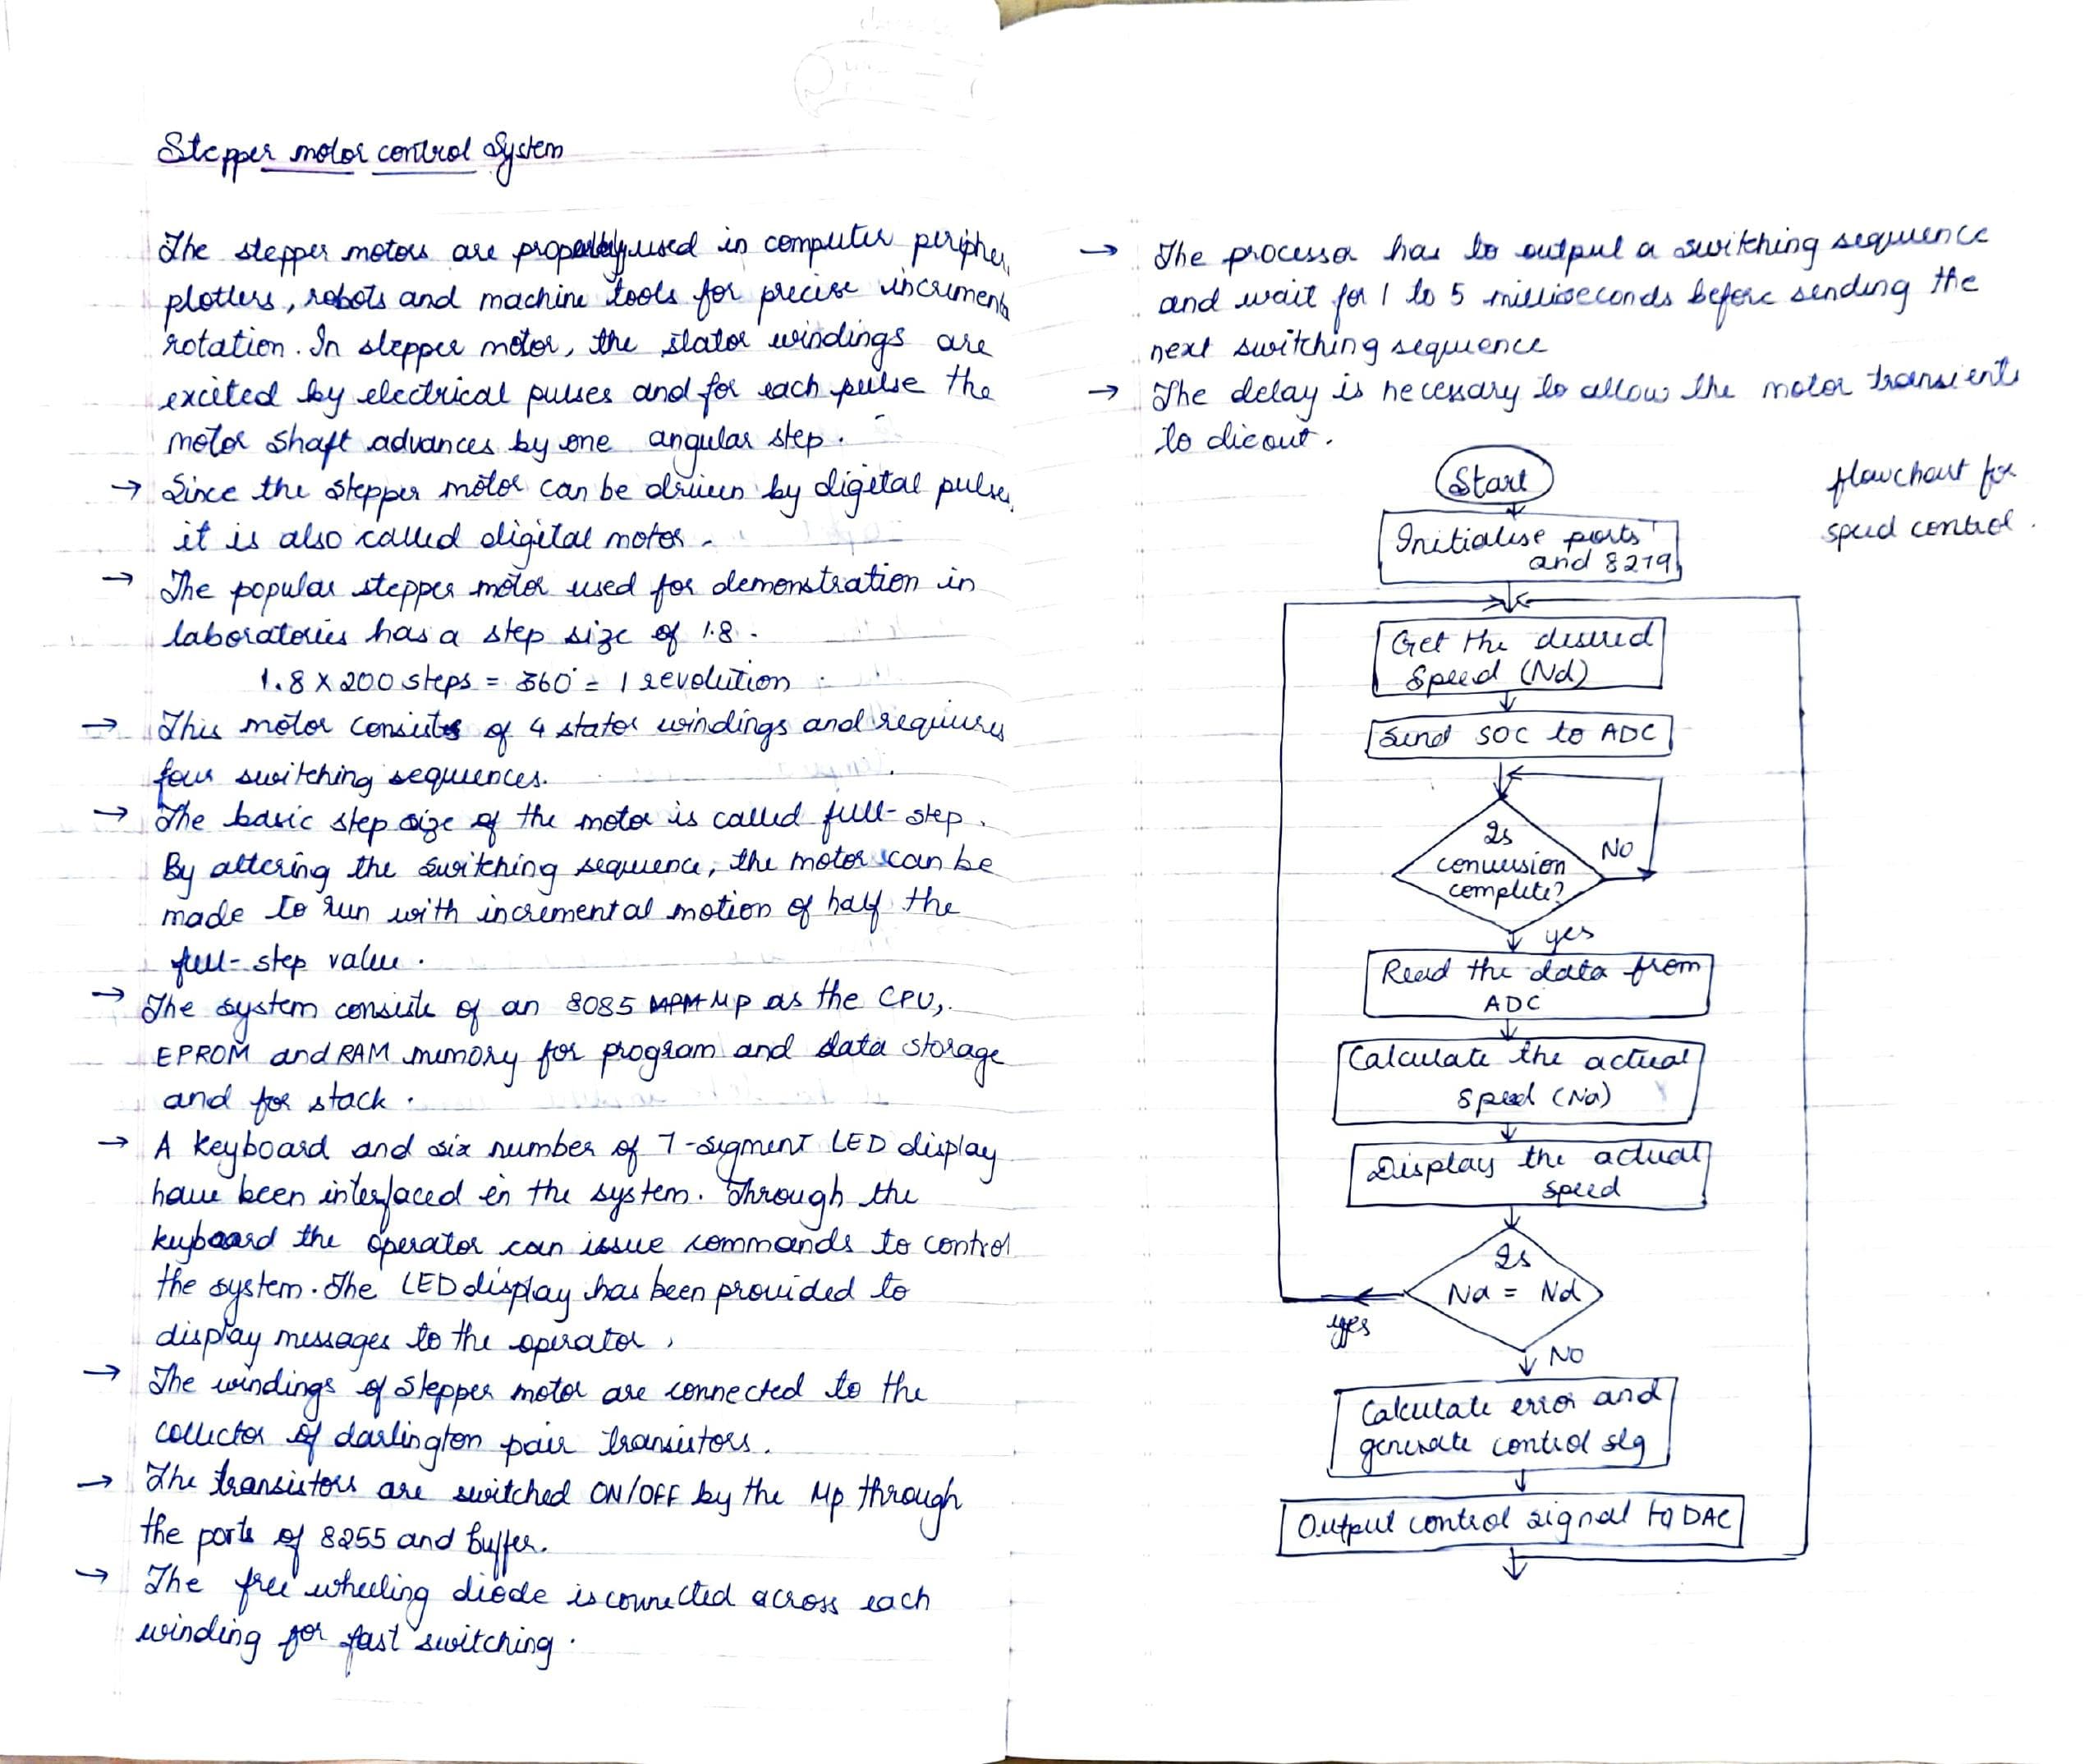 Stepper motor control System
The stepper motors are used in computer
plotters, robots and machine tools for precise
rotation. In stepper motor, the stator windings are
excited by electrical pulses and for each pulse the
motor shaft advances by one angular step.
→ Since the stepper motor can be driven by digital pulses,
it is also called digital motor.
→ The popular stepper motor used for demonstration in
laboratories has a step size of 1.8.
1.8 X 200 steps = 360° = 1 revolution
→ This motor consists of 4 stator windings and requires
four switching sequences.
→ The basic step size of the motor is called full-step.
By altering the switching sequence, the motor can be
made to run with incremental motion of half the
full-step value.
→ The system consists of an 8085 Mp as the CPU,
EPROM and RAM memory for program and data storage
and for stack.
→ A keyboard and six number of 7-segment LED display
have been interfaced in the system. Through the
keyboard the operator can issue commands to control
the system. The LED display has been provided to
display messages to the operator,
→ The windings of stepper motor are connected to the
collector of darlington pair transistors.
→ The transistors are switched ON/OFF by the Mp through
the ports of 8255 and buffer.
→ The free wheeling diode is connected across each
winding for fast switching.
→ The processor has to output a switching sequence
and wait for 1 to 5 milliseconds before sending the
next switching sequence
→ The delay is necessary to allow the motor transients
to dieout.
flowchart for
speed control.
Start
Initialise ports
and 8279
Get the desired
Speed (Nd)
Send SOC to ADC
Is
conversion
complete?
No
yes
Read the data from
ADC
Calculate the actual
speed (Na)
Display the actual
speed
Is
Na = Nd
yes
NO
Calculate error and
generate control slg
Output control signal to DAC